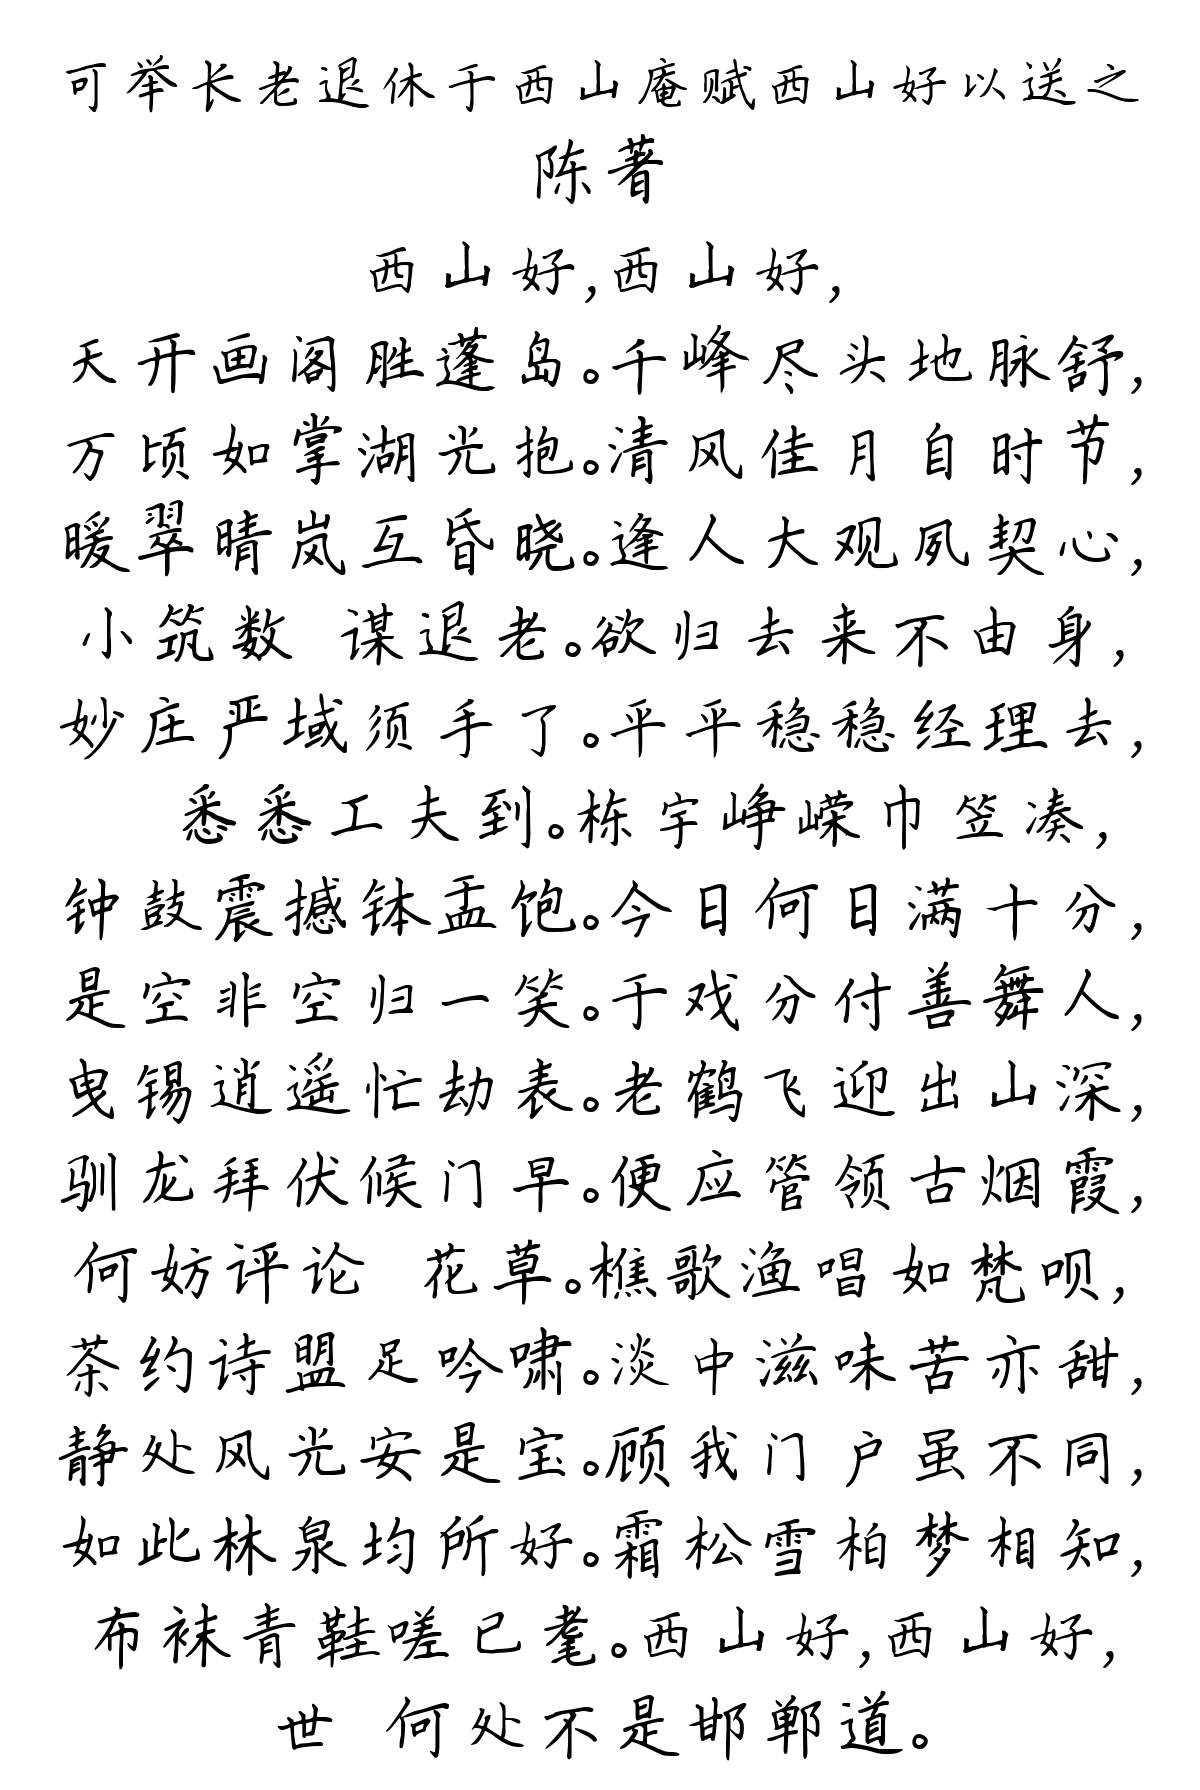 可举长老退休于西山庵赋西山好以送之
陈著
西山好,西山好,
天开画阁胜蓬岛。千峰尽头地脉舒,
万顷如掌湖光抱。清风佳月自时节,
暖翠晴岚互昏晓。逢人大观夙契心,
小筑数 谋退老。欲归去来不由身,
妙庄严域须手了。平平稳稳经理去,
悉悉工夫到。栋宇峥嵘巾笠凑,
钟鼓震撼钵盂饱。今日何日满十分,
是空非空归一笑。于戏分付善舞人,
曳锡逍遥忙劫表。老鹤飞迎出山深,
驯龙拜伏候门早。便应管领古烟霞,
何妨评论 花草。樵歌渔唱如梵呗,
茶约诗盟足吟啸。淡中滋味苦亦甜,
静处风光安是宝。顾我门户虽不同,
如此林泉均所好。霜松雪柏梦相知,
布袜青鞋嗟已耄。西山好,西山好,
世 何处不是邯郸道。